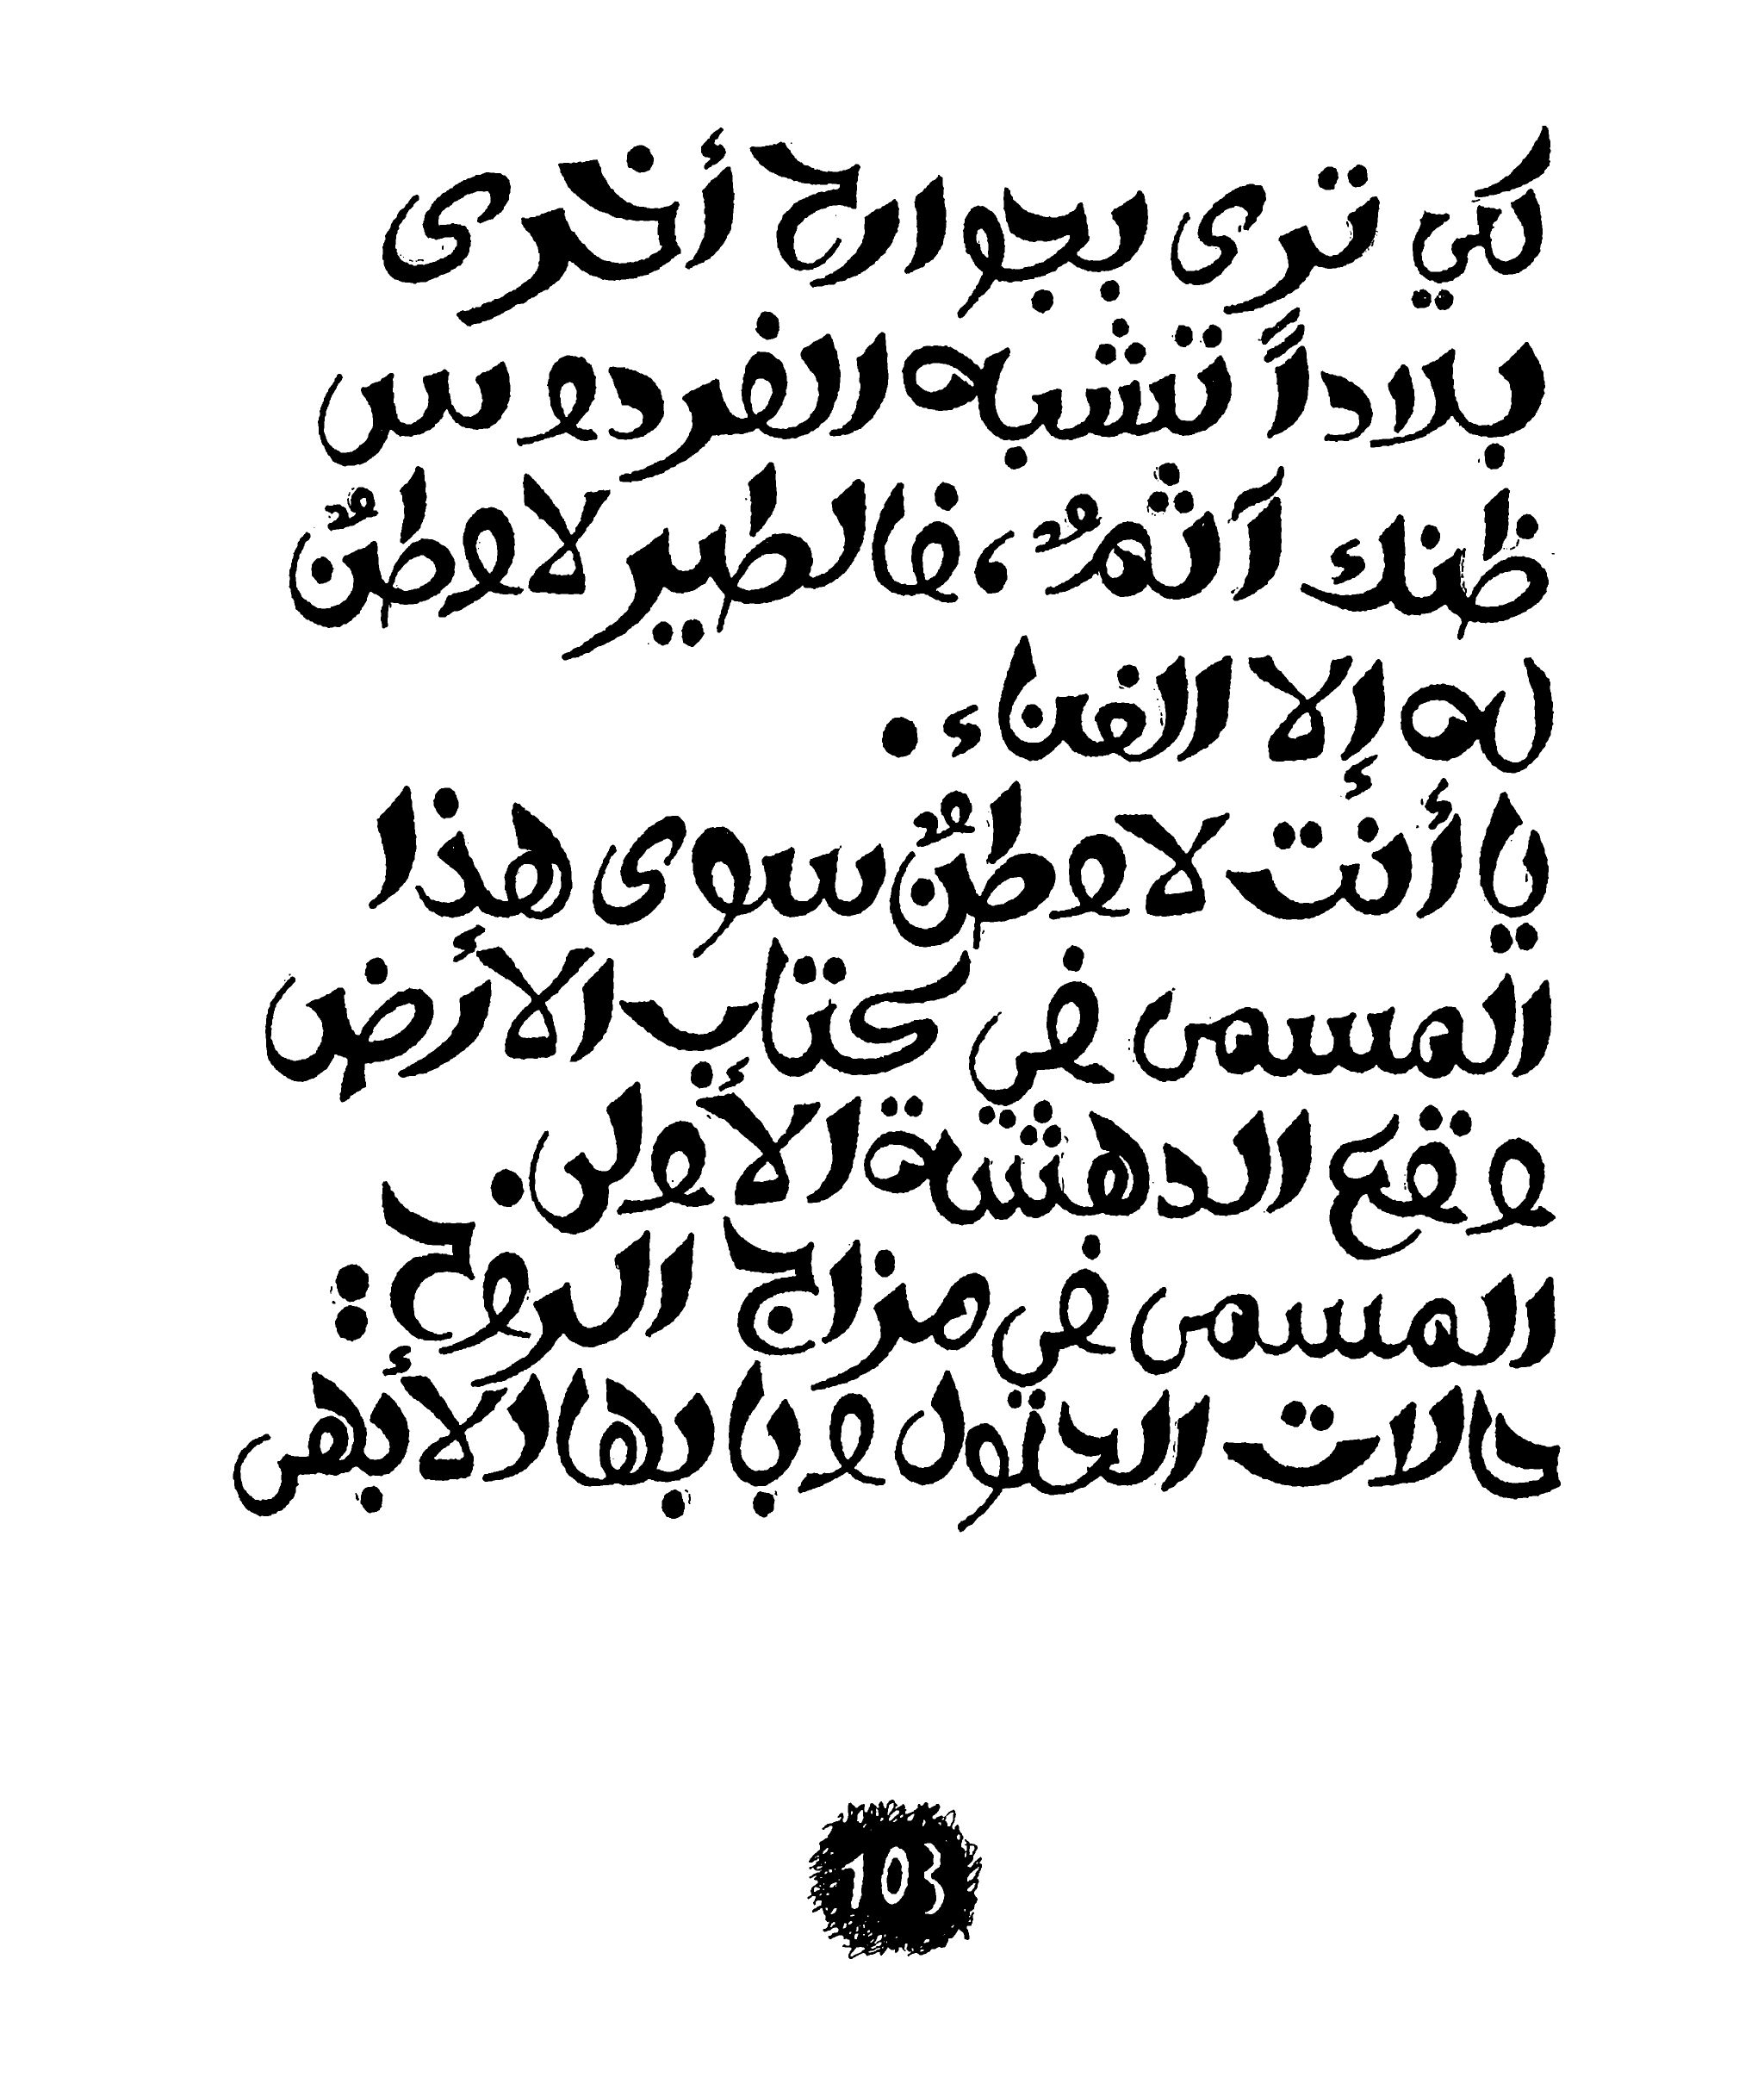 كي ترى بجوارح أخرى
بلاداً تشبه الفردوس
ظنك آثمٌ، فالطير لا وطنٌ
له إلا الغناء.
يا أنت لا وطنٌ سوى هذا
المسمى فى كتاب الأرض
وقع الدهشة الأولى.
المسمى فى مزاج الروح:
حالات الحقول وبابها الأبهى
103